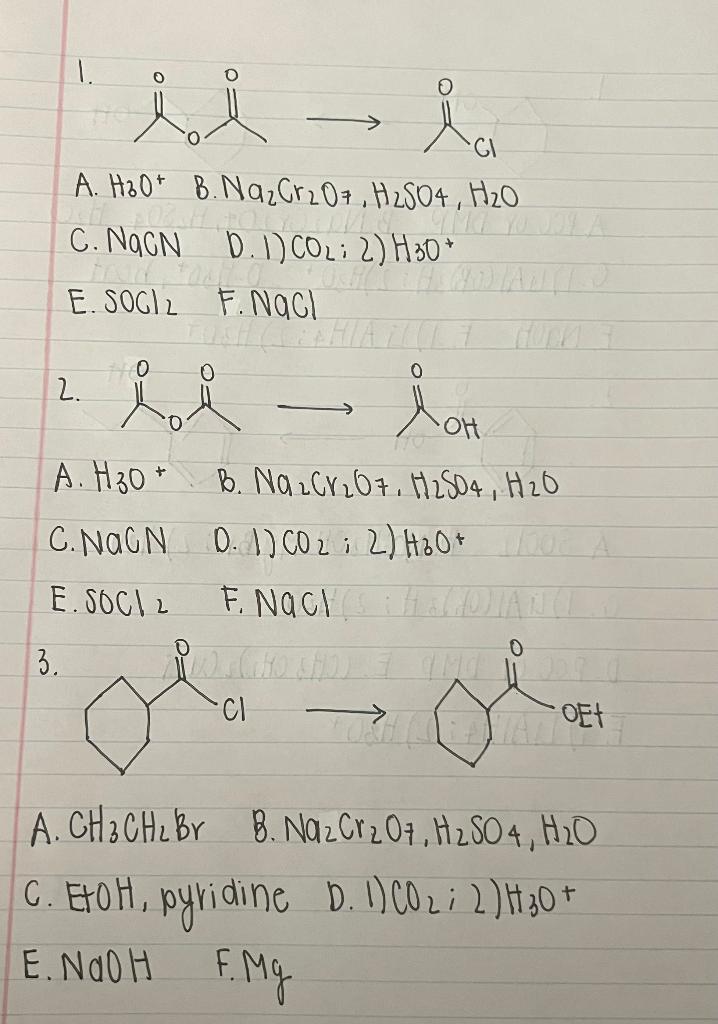 1.
O O O
O Cl
A. H3O+ B. Na2Cr2O7, H2SO4, H2O
C. NaCN D. 1) CO2; 2) H3O+
E. SOCl2 F. NaCl
2.
O O O
O OH
A. H3O+ B. Na2Cr2O7, H2SO4, H2O
C. NaCN D. 1) CO2; 2) H3O+
E. SOCl2 F. NaCl
3.
O O
Cl OEt
A. CH3CH2Br B. Na2Cr2O7, H2SO4, H2O
C. EtOH, pyridine D. 1) CO2; 2) H3O+
E. NaOH F. Mg